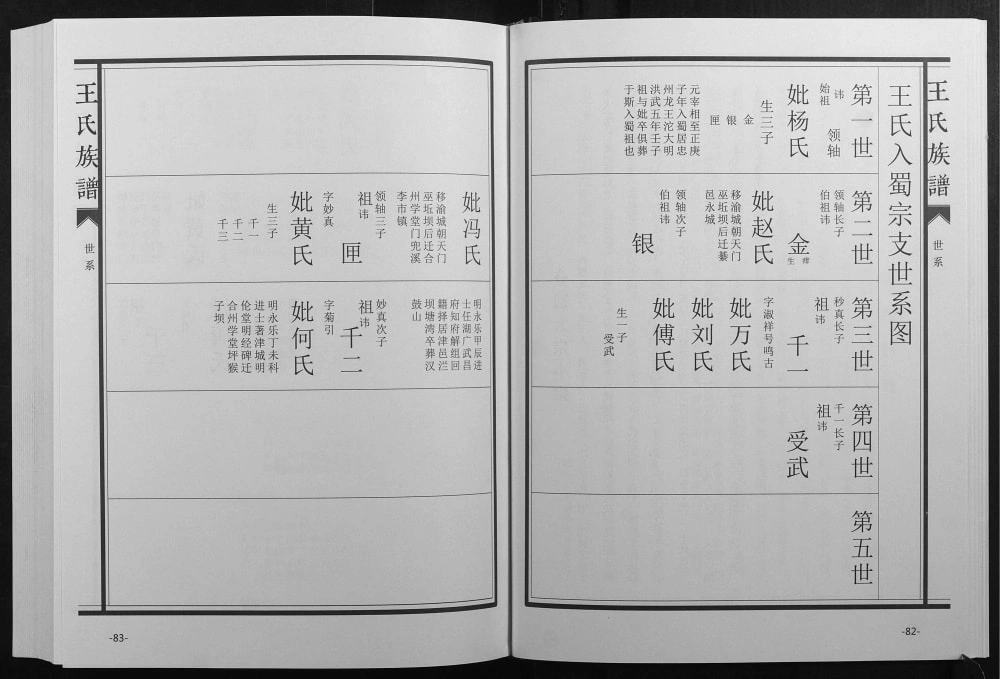 王氏族譜
世系
王氏入蜀宗支世系图
第一世
始祖
讳
领轴
妣杨氏
生三子
金
银
匣
元宰相至正庚
子年入蜀居忠
州龙王沱大明
洪武五年壬子
祖与妣卒俱葬
于斯入蜀祖也
第二世
领轴长子
伯祖讳
金
妣赵氏
移渝城朝天门
巫坵坝后迁綦
邑永城
领轴次子
伯祖讳
银
第三世
秒真长子
祖讳
千一
字淑祥号鸣古
妣万氏
妣刘氏
妣傅氏
生一子
受武
第四世
千一长子
祖讳
受武
第五世
-82-
妣冯氏
移渝城朝天门
巫坵坝后迁合
州学堂门兜溪
李市镇
领轴三子
祖讳
匣
字妙真
妣黄氏
生三子
千一
千二
千三
明永乐甲辰进
士任湖广武昌
府知府解组回
籍择居津邑浐
坝塘湾卒葬汉
鼓山
妙真次子
祖讳
千二
字菊引
妣何氏
明永乐丁未科
进士著津城明
伦堂明经碑迁
合州学堂坪猴
子坝
王氏族譜
世系
-83-